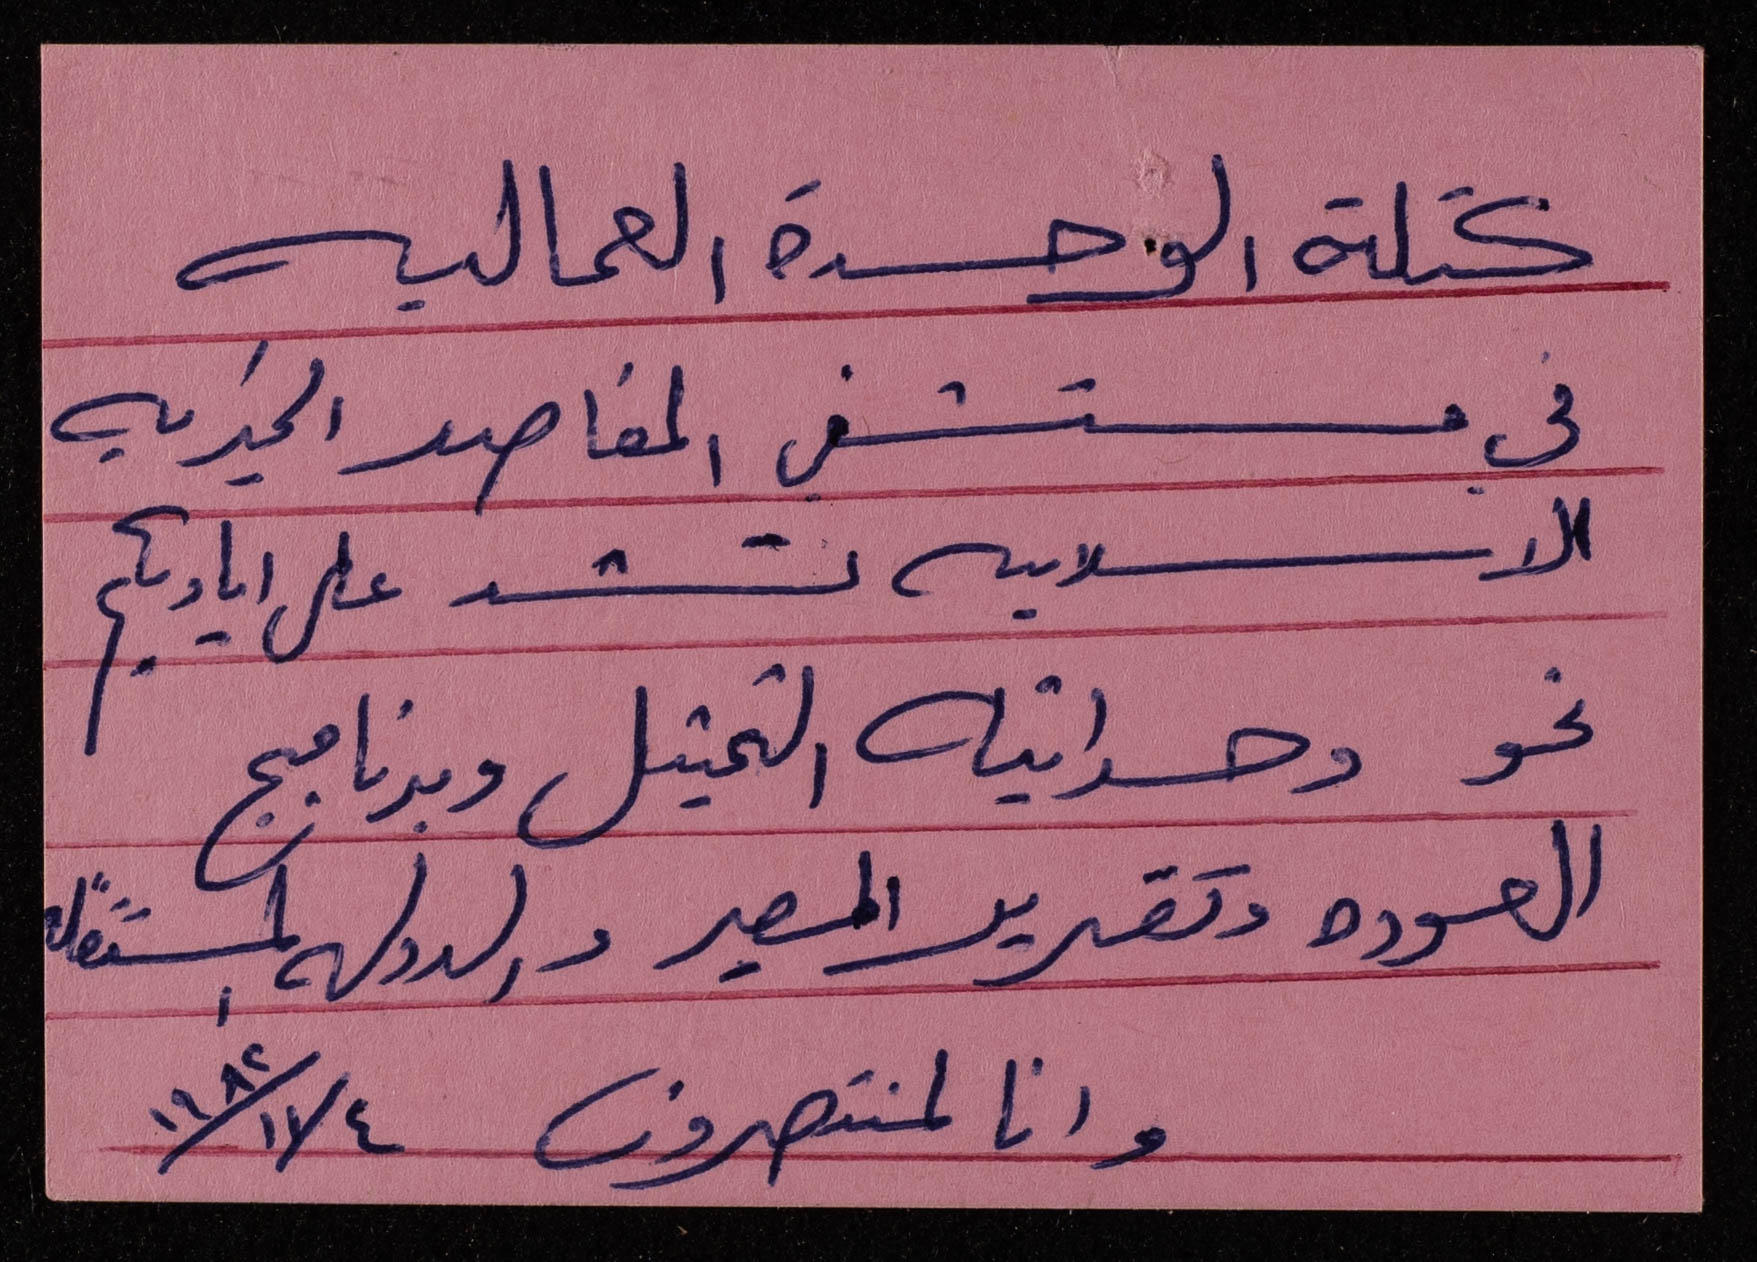 كتلة الوحدة العماليه
في مستشفى المقاصد الخيريه
الاسلاميه تشد على اياديكم
نحو وحدانية التمثيل وبرنامج
العوده وتقرير المصير والدوله المستقله
وانا لمنتصرون ٤/١٢/١٩٨٢